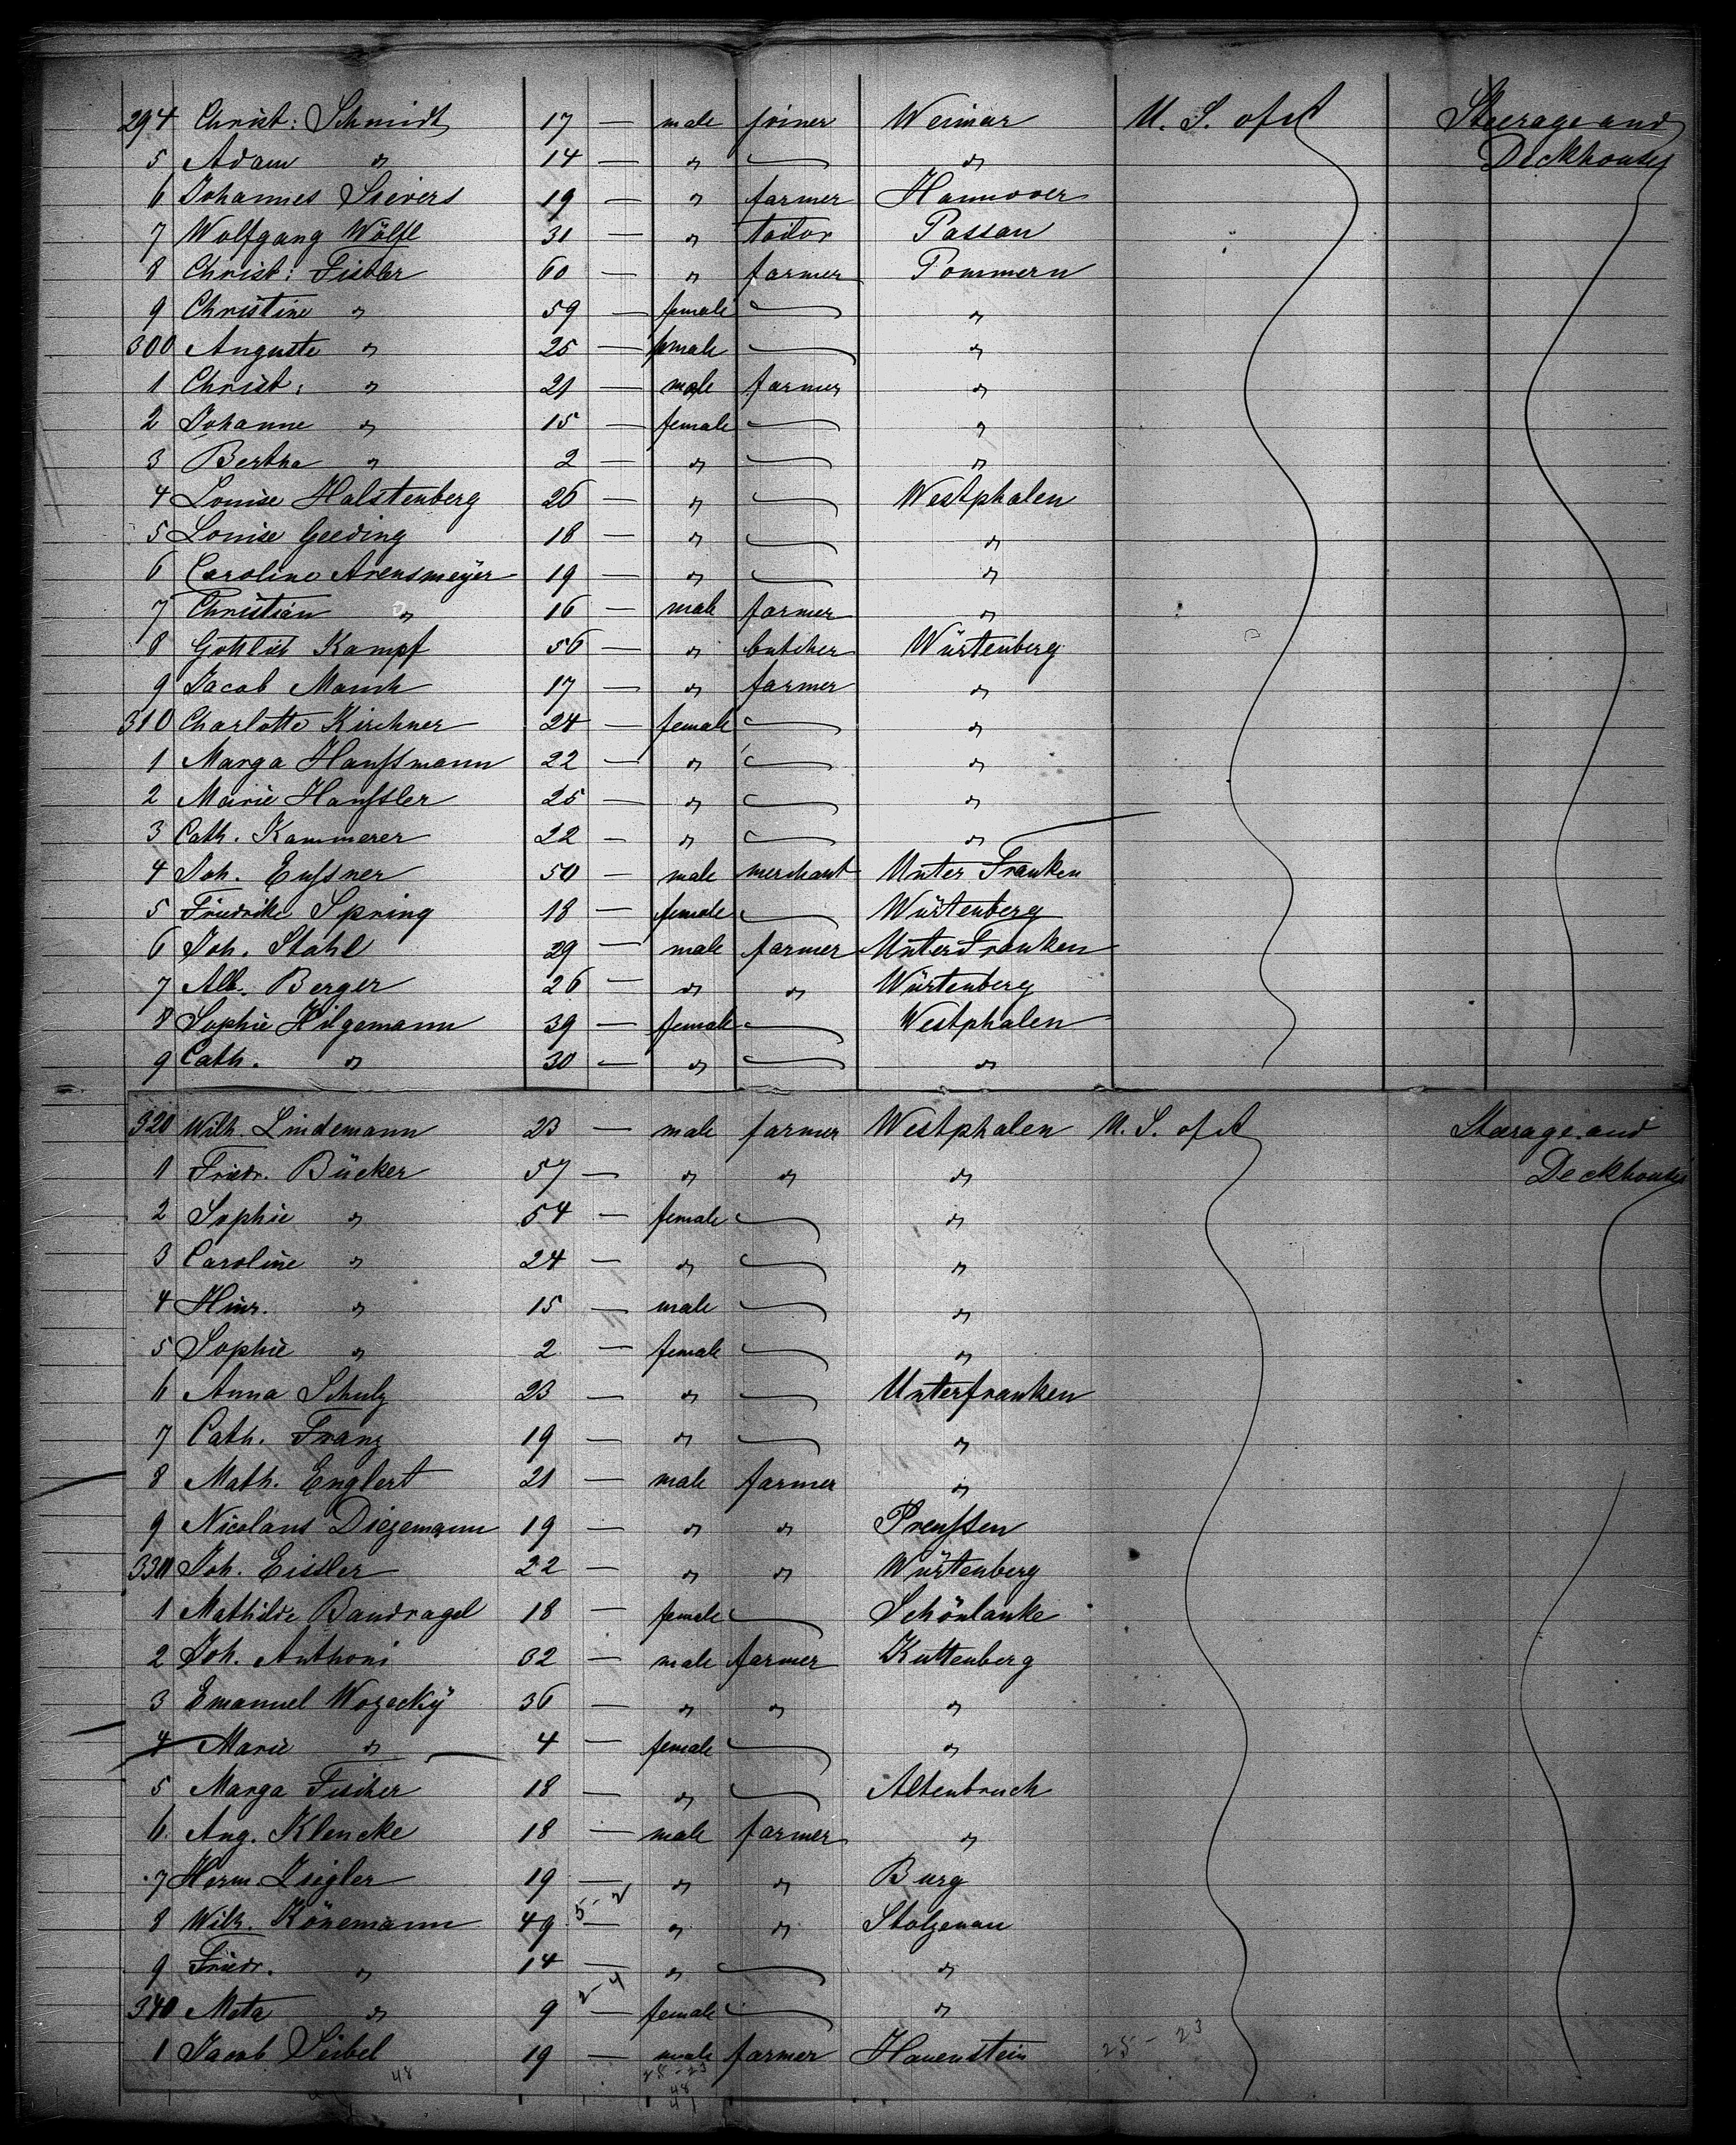 294 Christ: Schmidt 17 — male joiner Weimar U. S. of A Steerage and
5 Adam " 14 — " — " Deckhouses
6 Johannes Sievers 19 — " farmer Hannover
7 Wolfgang Wölfl 31 — " tailor Passau
8 Christ: 60 — " farmer Pommern
9 Christine " 59 — female — "
300 Auguste " 25 — female — "
1 Christ: " 21 — male farmer "
2 Johanne " 15 — female — "
3 Bertha " 2 — " — "
4 Louise Halstenberg 26 — " — Westphalen
5 Louise Geeding 18 — " — "
6 Caroline Arensmeÿer 19 — " — "
7 Christian " 16 — male farmer "
8 Gottlieb Kampf 56 — " butcher Würtenberg
9 Jacob 17 — " farmer "
310 Charlotte Kirchner 24 — female — "
1 Marga Haußmann 22 — " — "
2 Marie Haußler 25 — " — "
3 Cath. Kammerer 22 — " — "
4 Joh. Eußner 50 — male merchant Unter Franken
5 Friedrike Spring 18 — female — Würtenberg
6 Joh. Stahl 29 — male farmer Unter Franken
7 Alb. Berger 26 — " " Würtenberg
8 Sophie Hilgemann 39 — female — Westphalen
9 Cath. " 30 — " — "
320 Wilh. Lindemann 23 — male farmer Westphalen U. S. of A Steerage and
1 Friedr. Bücker 57 — " " " Deckhouses
2 Sophie " 54 — female — "
3 Caroline " 24 — " — "
4 Hinr. " 15 — male — "
5 Sophie " 2 — female — "
6 Anna Schulz 23 — " — Unterfranken
7 Cath. Franz 19 — " — "
8 Math. Englert 21 — male farmer "
9 Nicolaus Diezemann 19 — " " Preußen
330 Joh. Eissler 22 — " " Würtenberg
1 Mathilde Bandragel 18 — female — Schönlanke
2 Joh. Anthoni 32 — male farmer Kuttenberg
3 Emanuel Wozeckÿ 36 — " " "
4 Marie " 4 — female — "
5 Marga Fischer 18 — " — Altenbruch
6. Aug. Klencke 18 — male farmer "
7 Herm. Zieg­ler 19 — " " Burg
8 Wilh. Könemann 49 — " " Stolzenau
9 Friedr. " 14 — " — "
340 Meta " 9 — female — "
1 Jacob Seibel 19 — male farmer Hauenstein 25 - 23
48 25 - 23
48